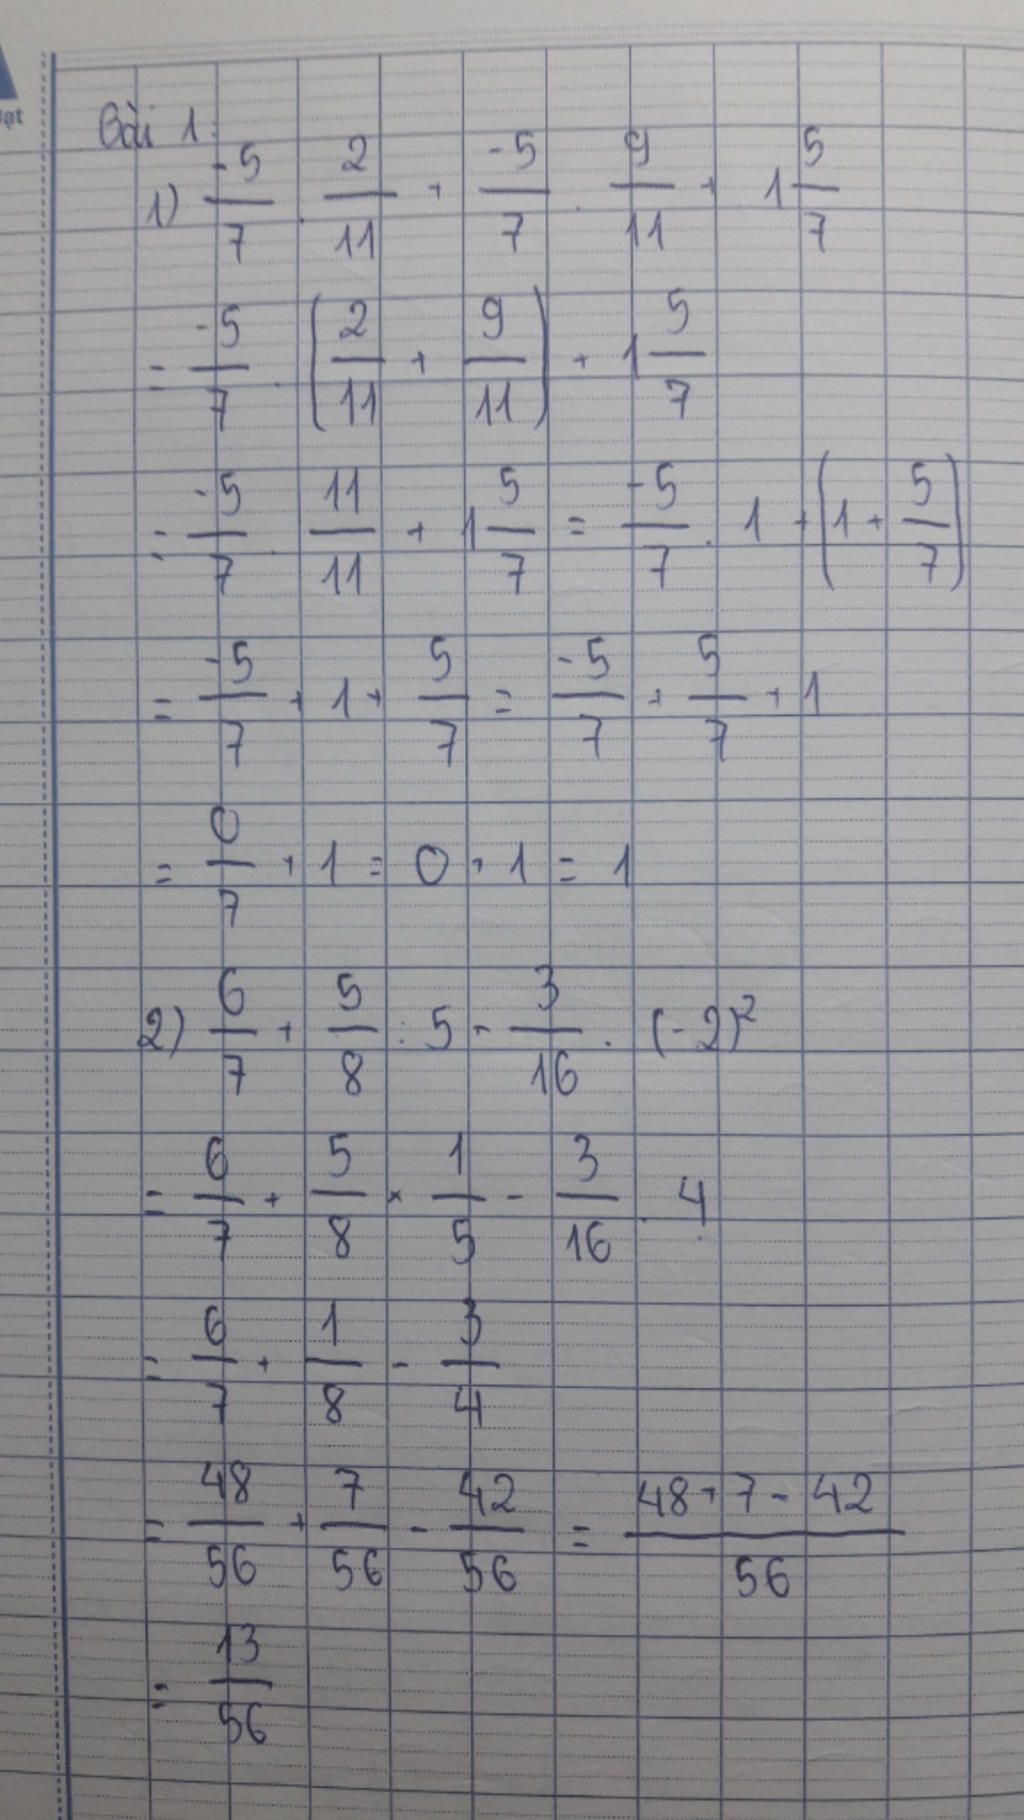 ạt
Bài 1:
1) -5/7 . 2/11 + -5/7 . 9/11 + 1 5/7
= -5/7 . (2/11 + 9/11) + 1 5/7
= -5/7 . 11/11 + 1 5/7 = -5/7 . 1 + (1 + 5/7)
= -5/7 + 1 + 5/7 = -5/7 + 5/7 + 1
= 0/7 + 1 = 0 + 1 = 1
2) 6/7 + 5/8 : 5 - 3/16 . (-2)²
= 6/7 + 5/8 × 1/5 - 3/16 . 4
= 6/7 + 1/8 - 3/4
= 48/56 + 7/56 - 42/56 = 48 + 7 - 42/56
= 13/56